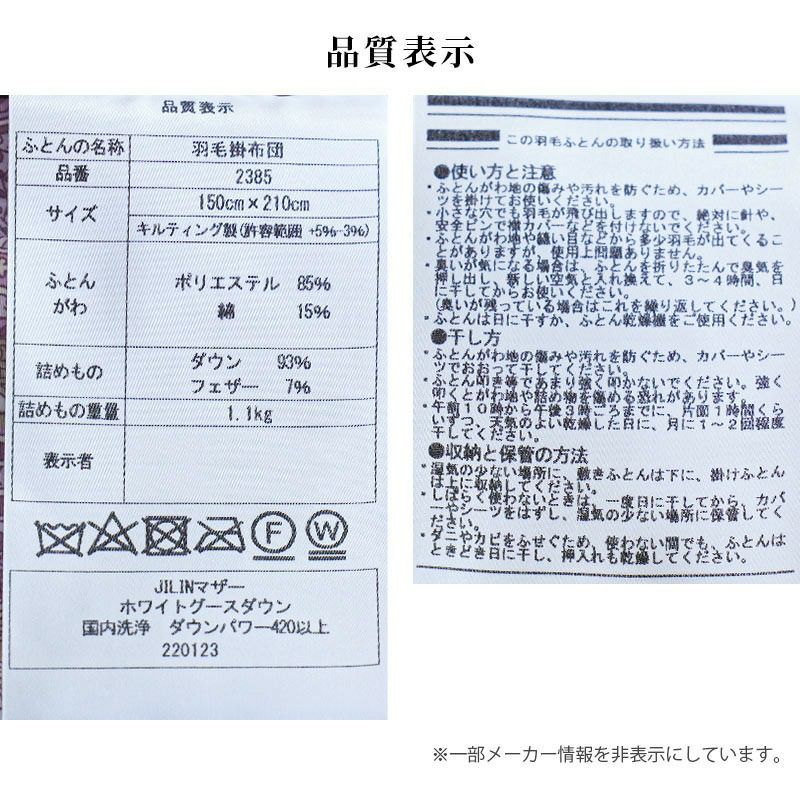 品質表示
品質表示
ふとんの名称 羽毛掛布団
品番 2385
サイズ 150cm×210cm
キルティング製(許容範囲 +5%-3%)
ふとんがわ ポリエステル 85%
綿 15%
詰めもの ダウン 93%
フェザー 7%
詰めもの重量 1.1kg
表示者
F W
JILINマザー
ホワイトグースダウン
国内洗浄 ダウンパワー420以上
220123
この羽毛ふとんの取り扱い方法
●使い方と注意
・ふとんがわ地の傷みや汚れを防ぐため、カバーやシー
ツを掛けてお使いください。
・小さな穴でも羽毛が飛び出しますので、絶対に針や、
安全ピンで襟カバーなどを付けないでください。
・ふとんがわ地や縫い目などから多少羽毛が出てくるこ
とがありますが、使用上問題ありません。
・臭いが気になる場合は、ふとんを折りたたんで臭気を
押し出して、新しい空気と入れ換えて、3~4時間、日
に干してからお使いください。
(臭いが残っている場合はこれを繰り返してください。)
・ふとんは日に干すか、ふとん乾燥機をご使用ください。
●干し方
・ふとんがわ地の傷みや汚れを防ぐため、カバーやシー
ツでおおって干してください。
・ふとん叩き等であまり強く叩かないでください。強く
叩くとがわ地や詰め物を傷める恐れがあります。
・午前10時から午後3時ごろまでに、片面1時間くら
いずつ、天気のよい乾燥した日に、月に1~2回程度
干してください。
●収納と保管の方法
・湿気の少ない場所に、敷きふとんは下に、掛けふとん
は上に収納してください。
・しばらく使わないときは、一度日に干してから、カバ
ーやシーツをはずし、湿気の少ない場所に保管してく
ださい。
・ダニやカビをふせぐため、使わない間でも、ふとんは
ときどき日に干し、押入れも乾燥してください。
※一部メーカー情報を非表示にしています。